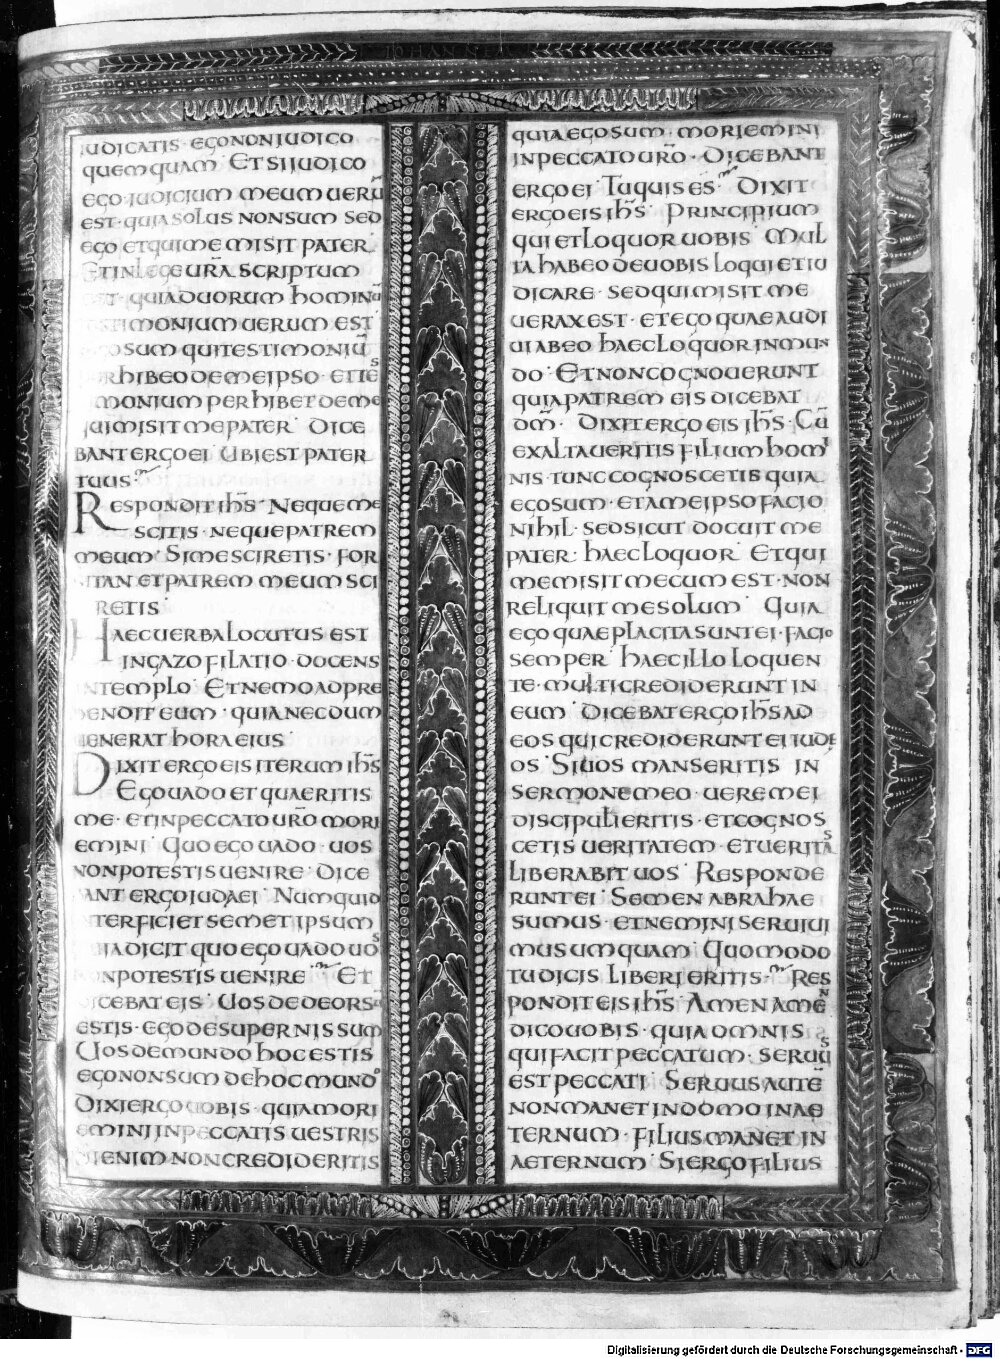 IOHANNEM
IUDICATIS · EGO NON IUDICO
QUEMQUAM · ET SI IUDICO
EGO IUDICIUM MEUM UERŪ
EST · QUIA SOLUS NON SUM SED
EGO ET QUI ME MISIT PATER ·
ET IN LEGE UR̄A SCRIPTUM
EST · QUIA DUORUM HOMINŪ
TESTIMONIUM UERUM EST
EGO SUM QUI TESTIMONIŪ
PERHIBEO DE ME IPSO · ET TES
MONIUM PERHIBET DE ME
QUI MISIT ME PATER · DICE
BANT ERGO EI · UBI EST PATER
TUUS ·
RESPONDIT IH̄S · NEQUE ME
SCITIS · NEQUE PATREM
MEUM · SI ME SCIRETIS · FOR
SITAN ET PATREM MEUM SCI
RETIS
HAEC UERBA LOCUTUS EST
IN GAZOFILATIO · DOCENS
IN TEMPLO · ET NEMO ADPRE
HENDIT EUM · QUIA NECDUM
UENERAT HORA EIUS ·
DIXIT ERGO EIS ITERUM IH̄S
EGO UADO ET QUAERITIS
ME · ET IN PECCATO UR̄O MORI
EMINI · QUO EGO UADO · UOS
NON POTESTIS UENIRE · DICE
BANT ERGO IUDAEI · NUMQUID
INTERFICIET SEMET IPSUM
QUIA DICIT QUO EGO UADO UOS
NON POTESTIS UENIRE · ET
DICEBAT EIS · UOS DE DEORSUM
ESTIS · EGO DE SUPERNIS SUM
UOS DE MUNDO HOC ESTIS
EGO NON SUM DE HOC MUNDO
DIXI ERGO UOBIS · QUIA MORI
EMINI IN PECCATIS UESTRIS
SI ENIM NON CREDIDERITIS
QUIA EGO SUM · MORIEMINI
IN PECCATO UR̄O · DICEBANT
ERGO EI · TU QUIS ES · DIXIT
ERGO EIS IH̄S · PRINCIPIUM
QUI ET LOQUOR UOBIS · MUL
TA HABEO DE UOBIS LOQUI ET IU
DICARE · SED QUI MISIT ME
UERAX EST · ET EGO QUAE AUDI
UI AB EO HAEC LOQUOR IN MUN
DO · ET NON COGNOUERUNT
QUIA PATREM EIS DICEBAT
DM̄ · DIXIT ERGO EIS IH̄S · CŪ
EXALTAUERITIS FILIUM HOMI
NIS · TUNC COGNOSCETIS QUIA
EGO SUM · ET A ME IPSO FACIO
NIHIL · SED SICUT DOCUIT ME
PATER · HAEC LOQUOR · ET QUI
ME MISIT MECUM EST · NON
RELIQUIT ME SOLUM · QUIA
EGO QUAE PLACITA SUNT EI · FACIO
SEMPER · HAEC ILLO LOQUEN
TE · MULTI CREDIDERUNT IN
EUM · DICEBAT ERGO IH̄S AD
EOS QUI CREDIDERUNT EI IUDE
OS · SI UOS MANSERITIS IN
SERMONE MEO · UERE MEI
DISCIPULI ERITIS · ET COGNOS
CETIS UERITATEM · ET UERITAS
LIBERABIT UOS · RESPONDE
RUNT EI · SEMEN ABRAHAE
SUMUS · ET NEMINI SERUIUI
MUS UMQUAM · QUOMODO
TU DICIS LIBERI ERITIS · RES
PONDIT EIS IH̄S · AMEN AMEN
DICO UOBIS · QUIA OMNIS
QUI FACIT PECCATUM · SERUUS
EST PECCATI · SERUUS AUTĒ
NON MANET IN DOMO IN AE
TERNUM · FILIUS MANET IN
AETERNUM · SI ERGO FILIUS
Digitalisierung gefördert durch die Deutsche Forschungsgemeinschaft - DFG